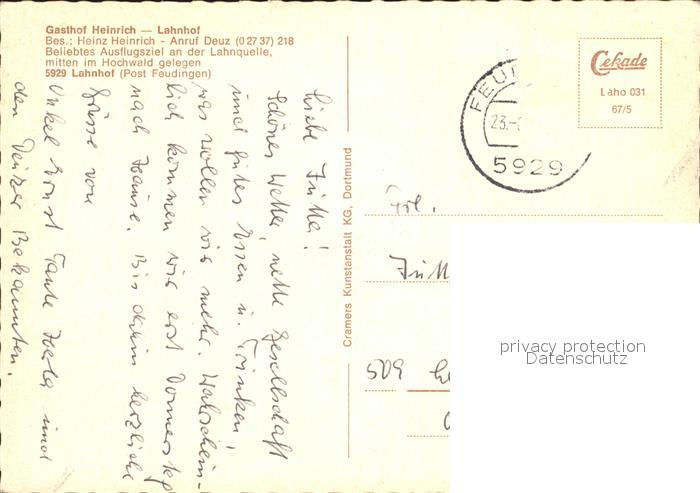 Gasthof Heinrich — Lahnhof
Bes.: Heinz Heinrich - Anruf Deuz (0 27 37) 218
Beliebtes Ausflugsziel an der Lahnquelle,
mitten im Hochwald gelegen
5929 Lahnhof (Post Feudingen)
Liebe Jutta!
Schönes Wetter, nette Gesellschaft
und gutes Essen u. Trinken,
was wollen wir mehr. Wahrschein-
lich kommen wir erst Donnerstag
nach Hause. Bis dahin herzliche
Grüsse von
Onkel Ernst Tante und
den Deuzer Bekannten.
Cramers Kunstanstalt KG, Dortmund
Cekade
Laho 031
67/5
FEU
23.-
5929
Frl.
Jutt
509 Le
privacy protection
Datenschutz